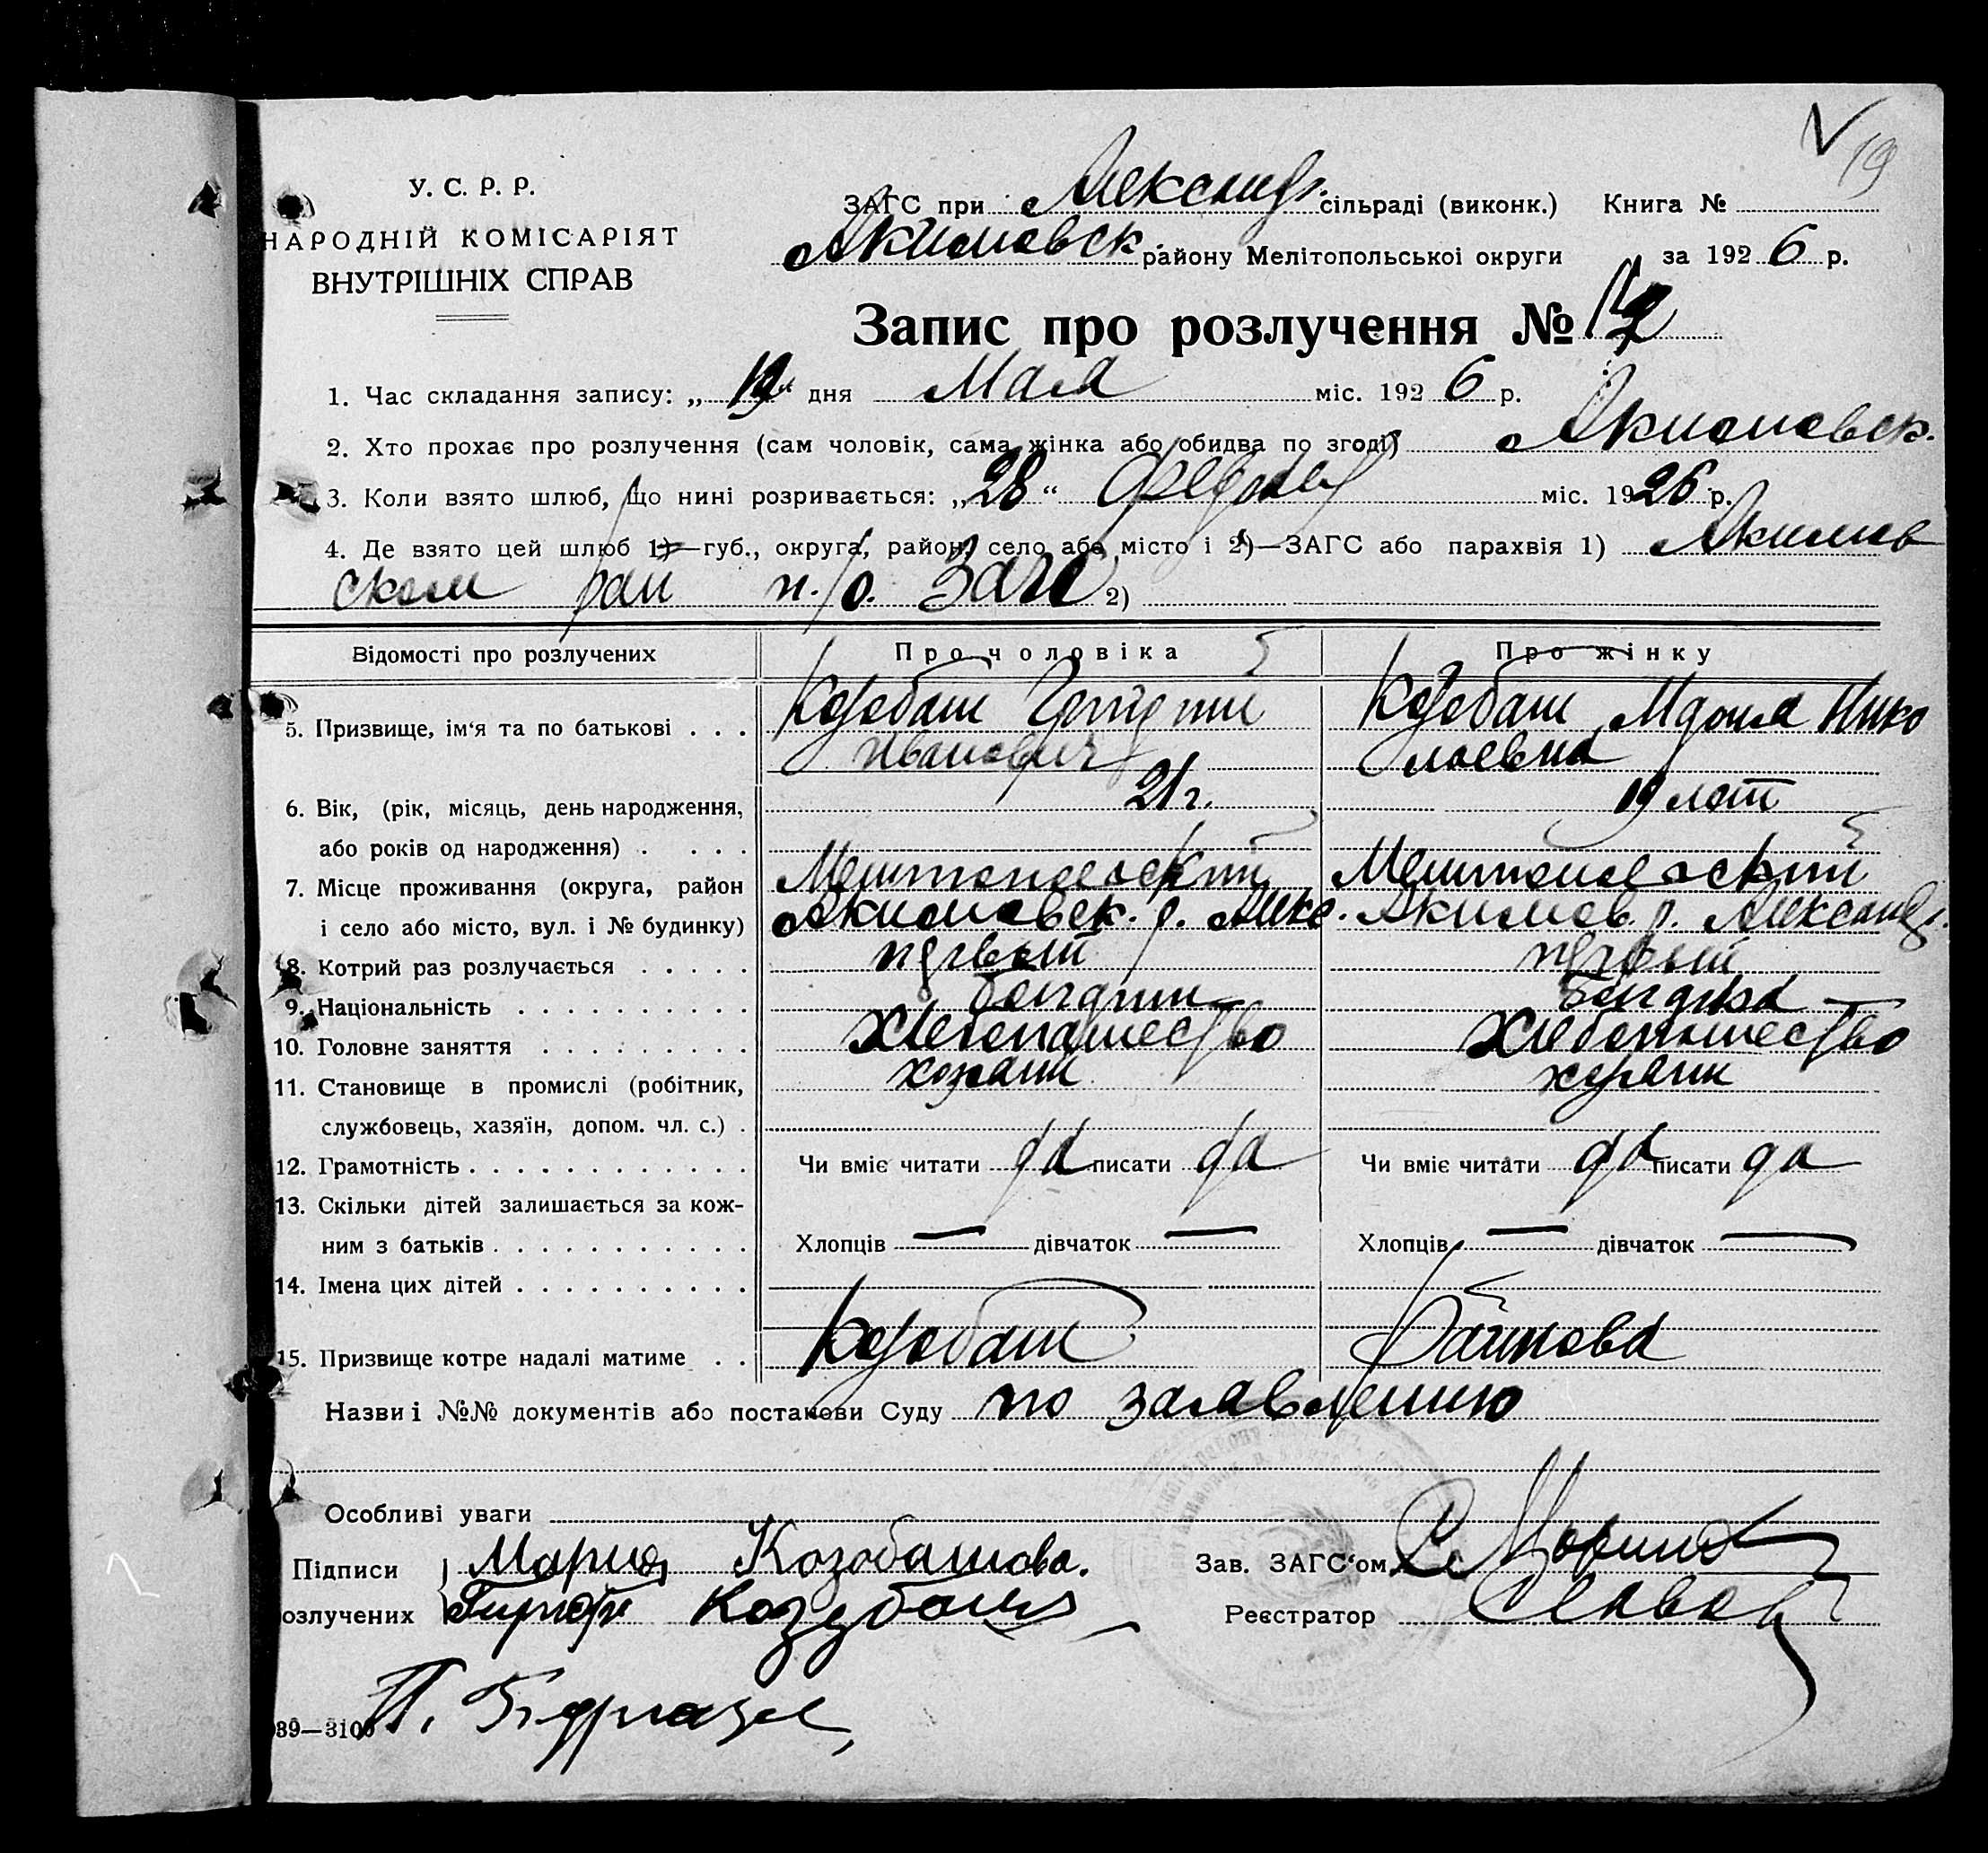 19
У. С. Р. Р.
НАРОДНІЙ КОМІСАРІЯТ
ВНУТРІШНІХ СПРАВ
ЗАГС при Александр. сільраді (виконк.) Книга №
Акимовск. району Мелітопольської округи за 1926 р.
Запис про розлучення № 12
1. Час складання запису: „19“ дня Мая міс. 1926 р.
2. Хто прохає про розлучення (сам чоловік, сама жінка або обидва по згоді) Акимовск.
3. Коли взято шлюб, що нині розривається: „28“ февраля міс. 1926 р.
4. Де взято цей шлюб 1)—губ., округа, район, село або місто і 2)—ЗАГС або парахвія 1) Акимов
ском рай п./о. Загс 2)
Відомості про розлучених
Про чоловіка
Про жінку
5. Призвище, ім‘я та по батькові . . .
Козобаш Григорий
Иванович
Козобаш Мария Нико
лаевна
6. Вік, (рік, місяць, день народження,
або років од народження) . . . .
21 г.
19 лет
7. Місце проживання (округа, район
і село або місто, вул. і № будинку)
Мелитопольский
Акимовск. р. Алекс.
Мелитопольский
Акимов. р. Александр.
8. Котрий раз розлучається . . . . .
первый
первый
9. Національність . . . . . . . . . .
болгарин
болгарка
10. Головне заняття . . . . . . . . .
Хлебопашество
Хлебопашество
11. Становище в промислі (робітник,
службовець, хазяїн, допом. чл. с.) .
хозяин
хозяин
12. Грамотність . . . . . . . . . . . . .
Чи вміє читати да писати да
Чи вміє читати да писати да
13. Скільки дітей залишається за кож-
ним з батьків . . . . . . . . . . .
Хлопців — дівчаток —
Хлопців — дівчаток —
14. Імена цих дітей . . . . . . . . . .
15. Призвище котре надалі матиме . .
Козобаш
Назви і №№ документів або постанови Суду по заявлению
Особливі уваги
Підписи
озлучених
Мария Козобашова.
Козубаш
Зав. ЗАГС‘ом
Реєстратор
39—3100